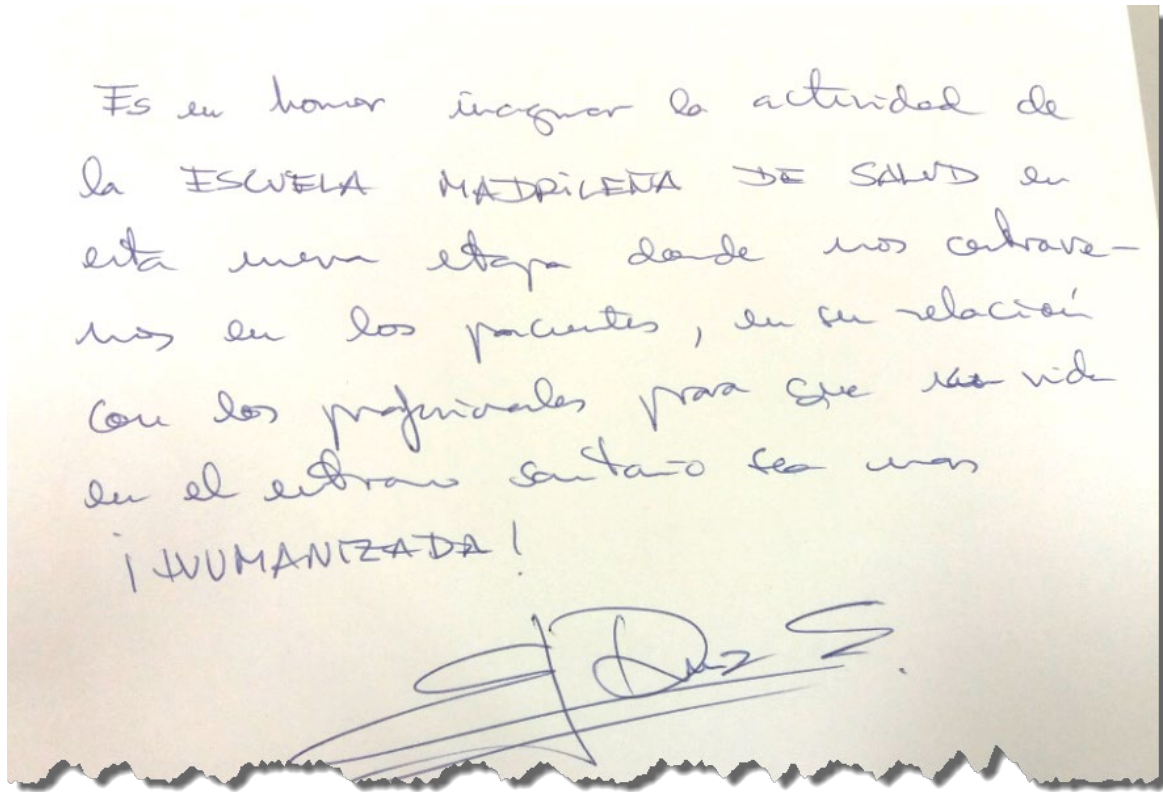 Es un honor inaugurar la actividad de
la ESCUELA MADRILEÑA DE SALUD en
esta nueva etapa donde nos centrare-
mos en los pacientes, en su relación
con los profesionales para que vida
en el entrono sanitario sea mas
¡HUMANIZADA!